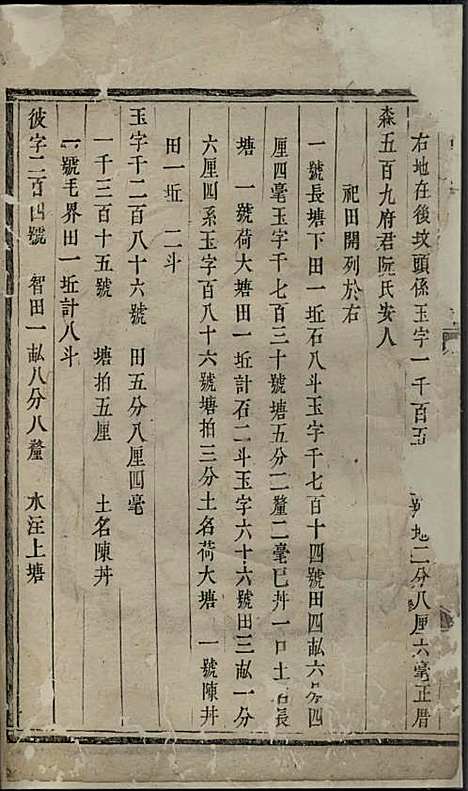 右地在後坟頭係玉字一千百五 地二分八厘六毫正厝
森五百九府君阮氏安人
祀田開列於右
一號長塘下田一坵石八斗玉字千七百十四號田四畝六分四
厘四毫玉字千七百三十號塘五分二釐二毫已丼一口土名長
塘 一號荷大塘田一坵計石二斗玉字六十六號田三畝一分
六厘四系玉字百八十六號塘拍三分土名荷大塘 一號陳丼
田一坵 二斗
玉字千二百八十六號 田五分八厘四毫
一千三百十五號 塘拍五厘 土名陳丼
一號毛界田一坵計八斗
彼字二百四號 智田一畝八分八釐 水注上塘